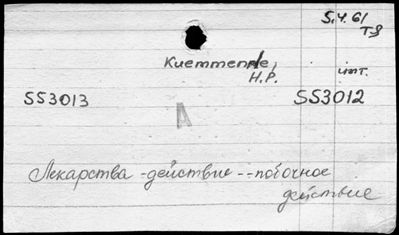 5.4.61
TS
Kuemmerle,
H.P. int.
553013 553012
A
Лекарства - действие -- побочное
действие